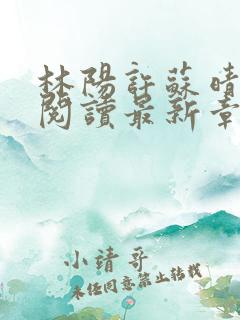 林陽許蘇晴
閱讀最新章
小靖哥
未经同意禁止转载